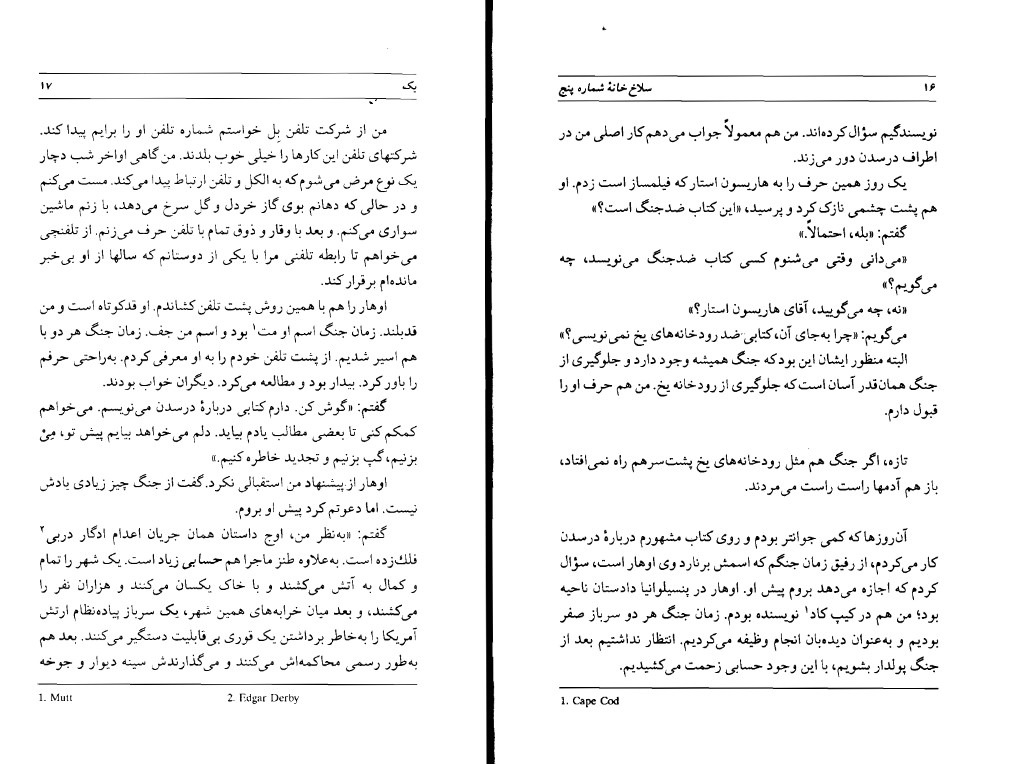 ۱۶ سلاخ‌خانهٔ شماره پنج
نویسندگیم سؤال کرده‌اند. من هم معمولاً جواب می‌دهم کار اصلی من در
اطراف درسدن دور می‌زند.
یک روز همین حرف را به هاریسون استار که فیلمساز است زدم. او
هم پشت چشمی نازک کرد و پرسید، «این کتاب ضدجنگ است؟»
گفتم: «بله، احتمالاً.»
«می‌دانی وقتی می‌شنوم کسی کتاب ضدجنگ می‌نویسد، چه
می‌گویم؟»
«نه، چه می‌گویید، آقای هاریسون استار؟»
می‌گویم: «چرا به‌جای آن، کتابی ضد رودخانه‌های یخ نمی‌نویسی؟»
البته منظور ایشان این بود که جنگ همیشه وجود دارد و جلوگیری از
جنگ همان‌قدر آسان است که جلوگیری از رودخانه یخ. من هم حرف او را
قبول دارم.
تازه، اگر جنگ هم مثل رودخانه‌های یخ پشت‌سرهم راه نمی‌افتاد،
باز هم آدمها راست راست می‌مردند.
آن‌روزها که کمی جوانتر بودم و روی کتاب مشهورم دربارهٔ درسدن
کار می‌کردم، از رفیق زمان جنگم که اسمش برنارد وی اوهار است، سؤال
کردم که اجازه می‌دهد بروم پیش او. اوهار در پنسیلوانیا دادستان ناحیه
بود؛ من هم در کیپ کاد۱ نویسنده بودم. زمان جنگ هر دو سرباز صفر
بودیم و به‌عنوان دیده‌بان انجام وظیفه می‌کردیم. انتظار نداشتیم بعد از
جنگ پولدار بشویم، با این وجود حسابی زحمت می‌کشیدیم.
1. Cape Cod
یک ۱۷
من از شرکت تلفن بِل خواستم شماره تلفن او را برایم پیدا کند.
شرکتهای تلفن این کارها را خیلی خوب بلدند. من گاهی اواخر شب دچار
یک نوع مرض می‌شوم که به الکل و تلفن ارتباط پیدا می‌کند. مست می‌کنم
و در حالی که دهانم بوی گاز خردل و گل سرخ می‌دهد، با زنم ماشین
سواری می‌کنم. و بعد با وقار و ذوق تمام با تلفن حرف می‌زنم. از تلفنچی
می‌خواهم تا رابطه تلفنی مرا با یکی از دوستانم که سالها از او بی‌خبر
مانده‌ام برقرار کند.
اوهار را هم با همین روش پشت تلفن کشاندم. او قدکوتاه است و من
قدبلند. زمان جنگ اسم او مت۱ بود و اسم من جف. زمان جنگ هر دو با
هم اسیر شدیم. از پشت تلفن خودم را به او معرفی کردم. به‌راحتی حرفم
را باور کرد. بیدار بود و مطالعه می‌کرد. دیگران خواب بودند.
گفتم: «گوش کن. دارم کتابی دربارهٔ درسدن می‌نویسم. می‌خواهم
کمکم کنی تا بعضی مطالب یادم بیاید. دلم می‌خواهد بیایم پیش تو، مِیْ
بزنیم، گپ بزنیم و تجدید خاطره کنیم.»
اوهار از پیشنهاد من استقبالی نکرد. گفت از جنگ چیز زیادی یادش
نیست. اما دعوتم کرد پیش او بروم.
گفتم: «به‌نظر من، اوج داستان همان جریان اعدام ادگار دربی۲
فلك‌زده است. به‌علاوه طنز ماجرا هم حسابی زیاد است. یک شهر را تمام
و کمال به آتش می‌کشند و با خاک یکسان می‌کنند و هزاران نفر را
می‌کشند، و بعد میان خرابه‌های همین شهر، یک سرباز پیاده‌نظام ارتش
آمریکا را به‌خاطر برداشتن یک قوری بی‌قابلیت دستگیر می‌کنند. بعد هم
به‌طور رسمی محاکمه‌اش می‌کنند و می‌گذارندش سینه دیوار و جوخه
1. Mutt 2. Edgar Derby